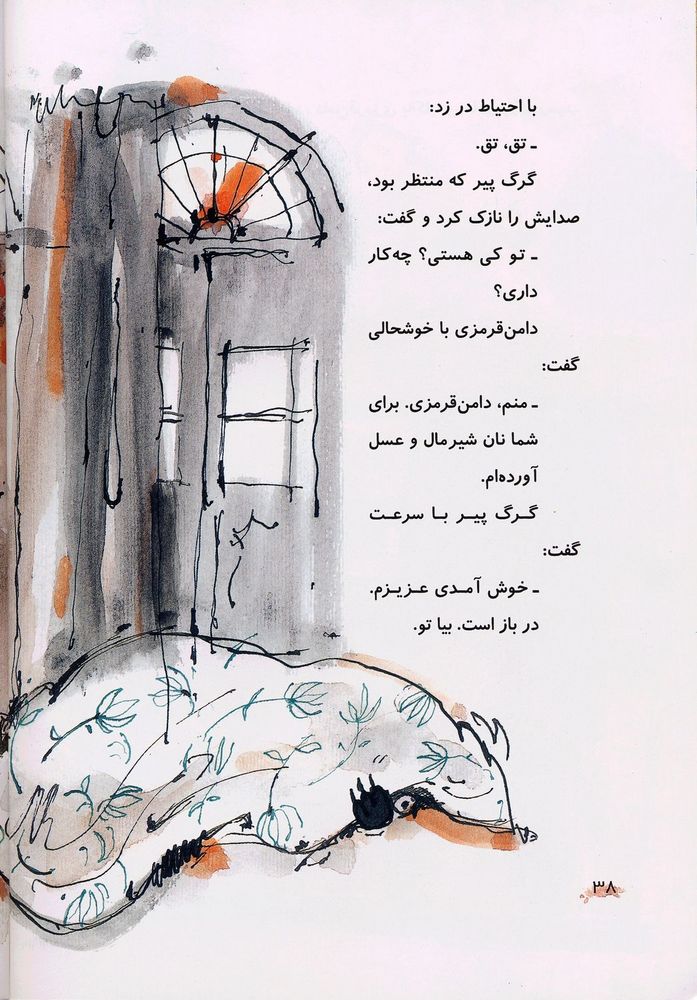 با احتیاط در زد:
ـ تق، تق.
گرگ پیر که منتظر بود،
صدایش را نازک کرد و گفت:
ـ تو کی هستی؟ چه‌کار
داری؟
دامن‌قرمزی با خوشحالی
گفت:
ـ منم، دامن‌قرمزی. برای
شما نان شیرمال و عسل
آورده‌ام.
گـرگ پیـر بـا سرعـت
گفت:
ـ خوش آمـدی عـزیـزم.
در باز است. بیا تو.
۳۸